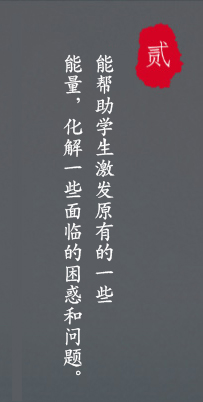 贰
能帮助学生激发原有的一些
能量，化解一些面临的困惑和问题。